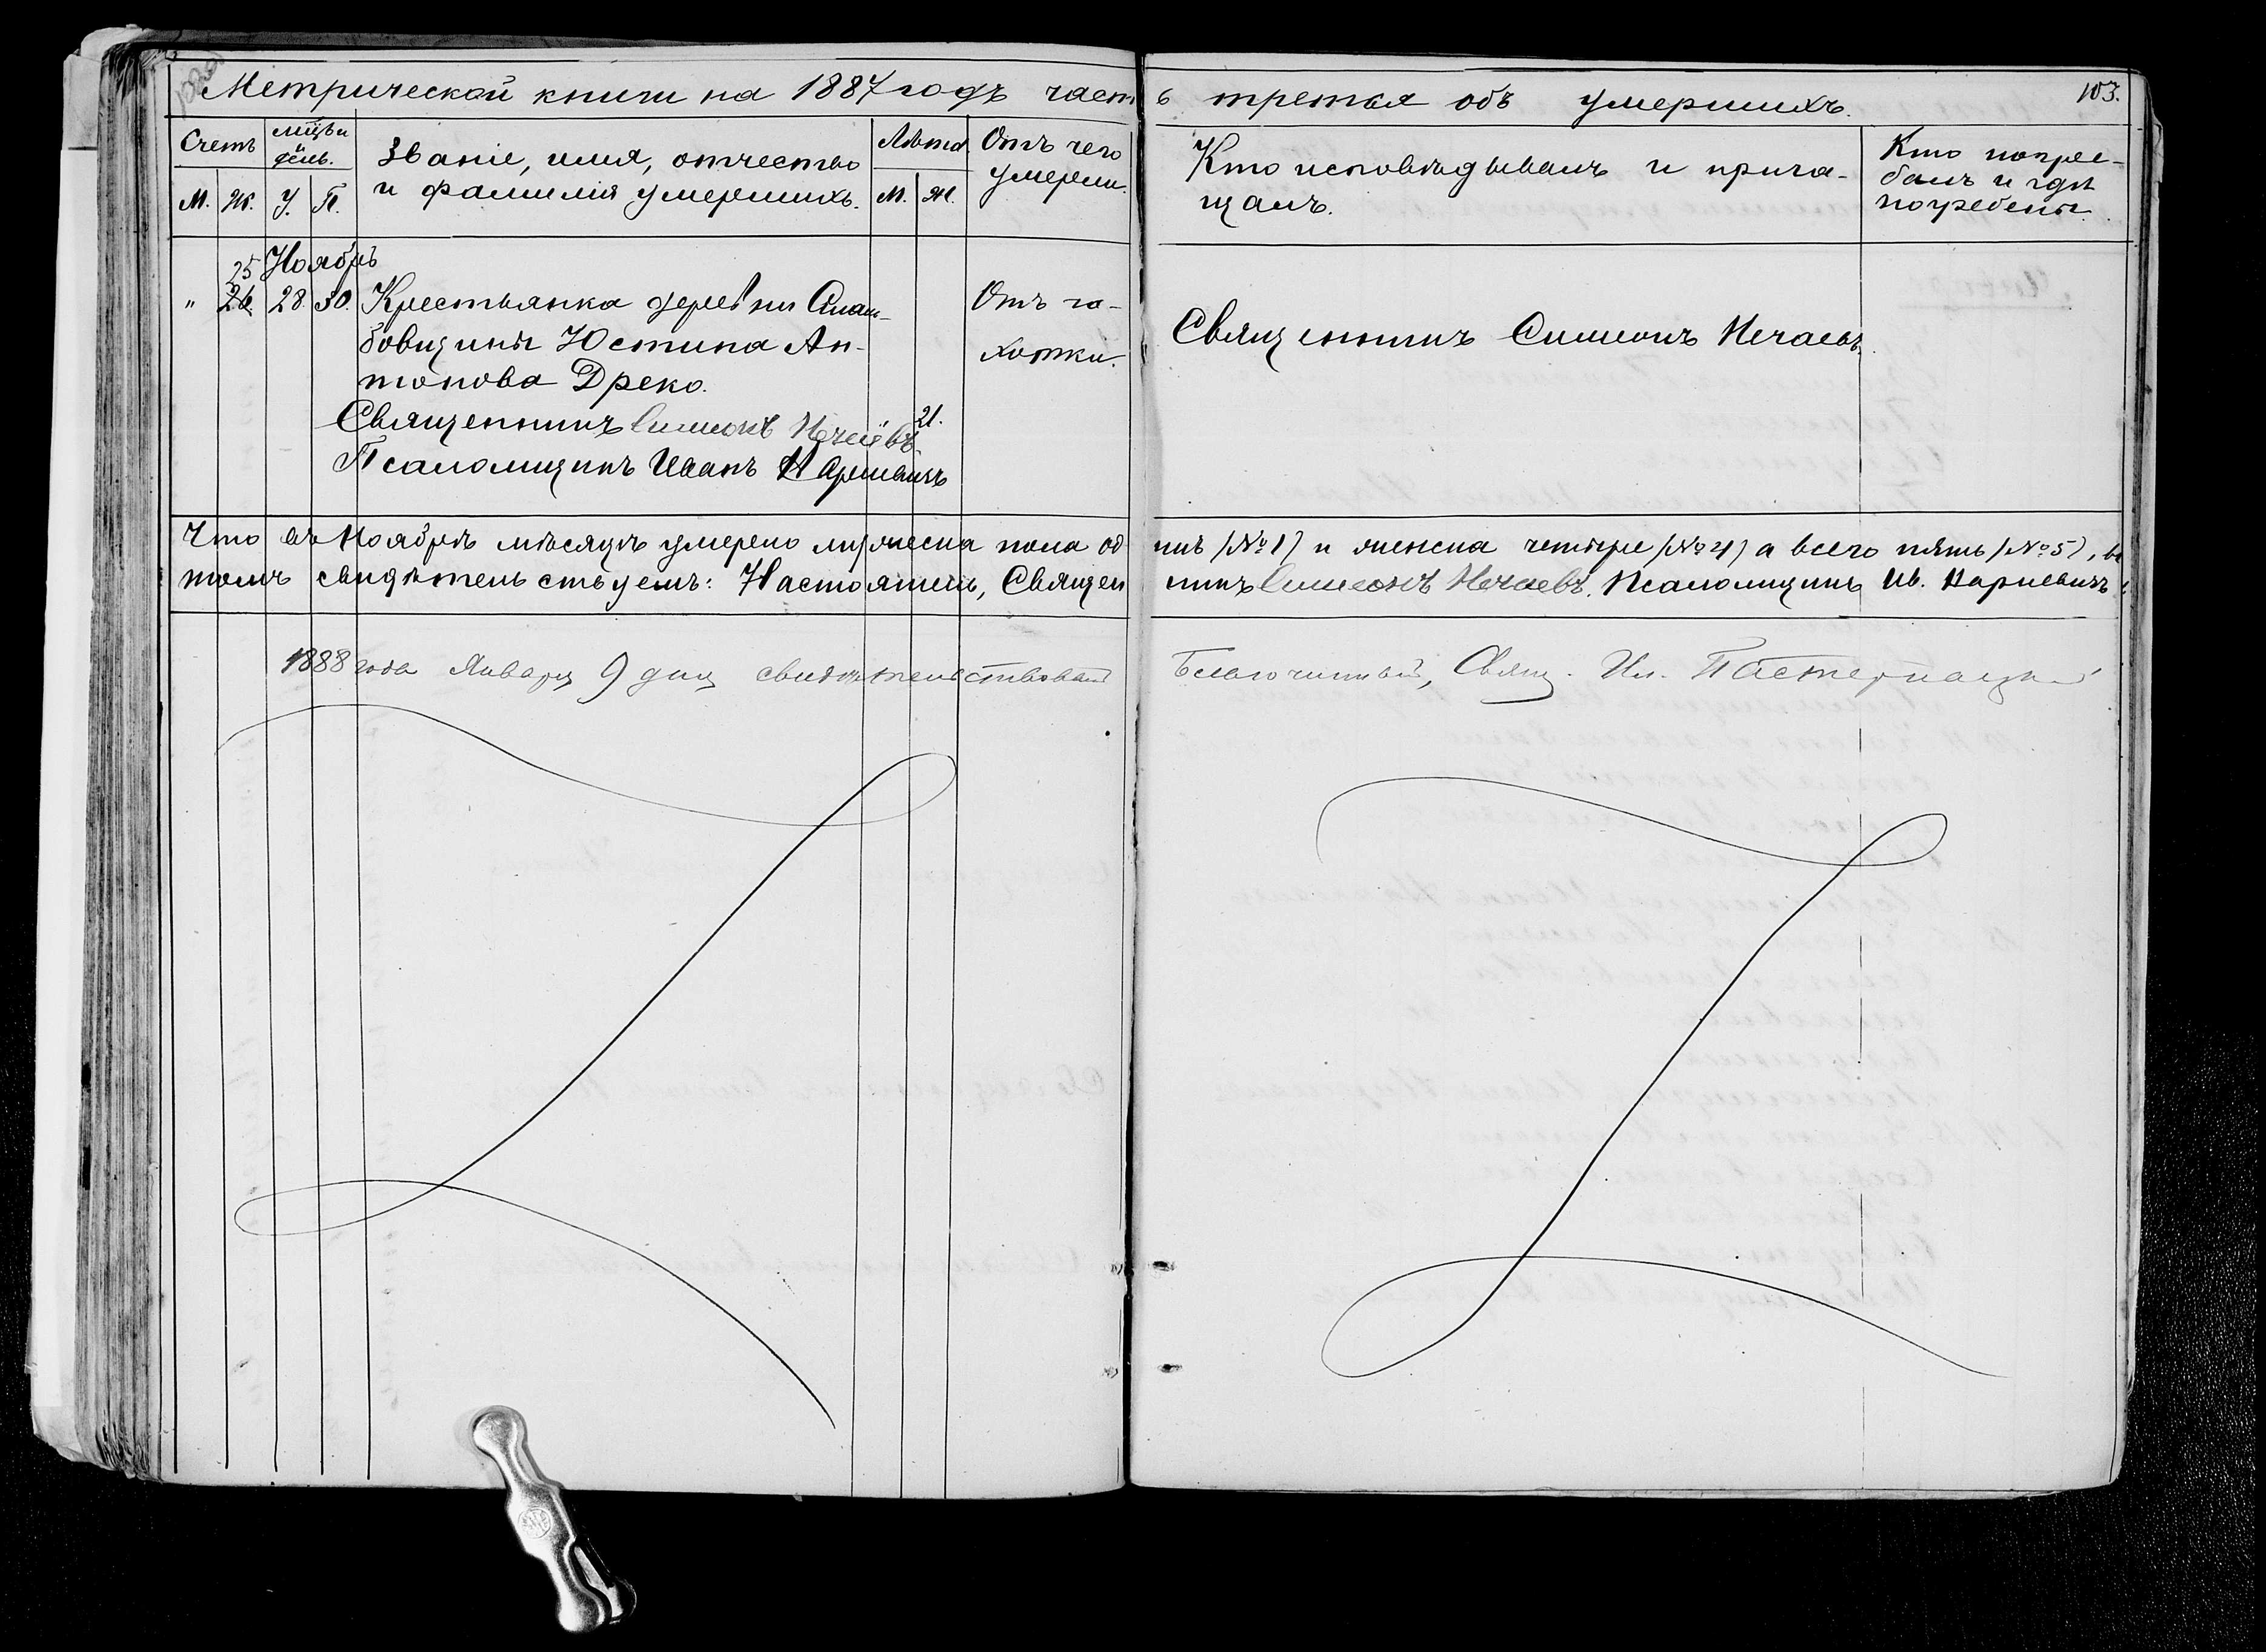 Метрической книги на 1887 годъ часть третья объ умершихъ.
103.
Счетъ
м҃цъ и день.
Званіе, имя, отчество и фамилія умершихъ.
Лѣта
Отъ чего умерли.
Кто исповѣдывалъ и прича-
щалъ.
Кто погре-
балъ и гдѣ
погребены.
М. Ж. У. П.
М. Ж.
Ноябрь
25
" 26. 28. 30. Крестьянка деревни
бовщины Юстина Ан-
тонова Дреко.
21.
Отъ ча-
хотки.
Священникъ Симеонъ Нечаевъ.
Священникъ Симеонъ Нечаевъ
Псаломщикъ Иванъ
Что въ Ноябрѣ мѣсяцѣ умерло мужеска пола одинъ (№ 1) и женска четыре (№ 4) а всего пять (№ 5), въ
томъ свидѣтельствуемъ: Настоятель, Священникъ Симеонъ Нечаевъ. Псаломщикъ Ив.
1888 года Января 9 дня свидѣтельствовалъ Благочинный, Свящ. Ил. Пастернацкій